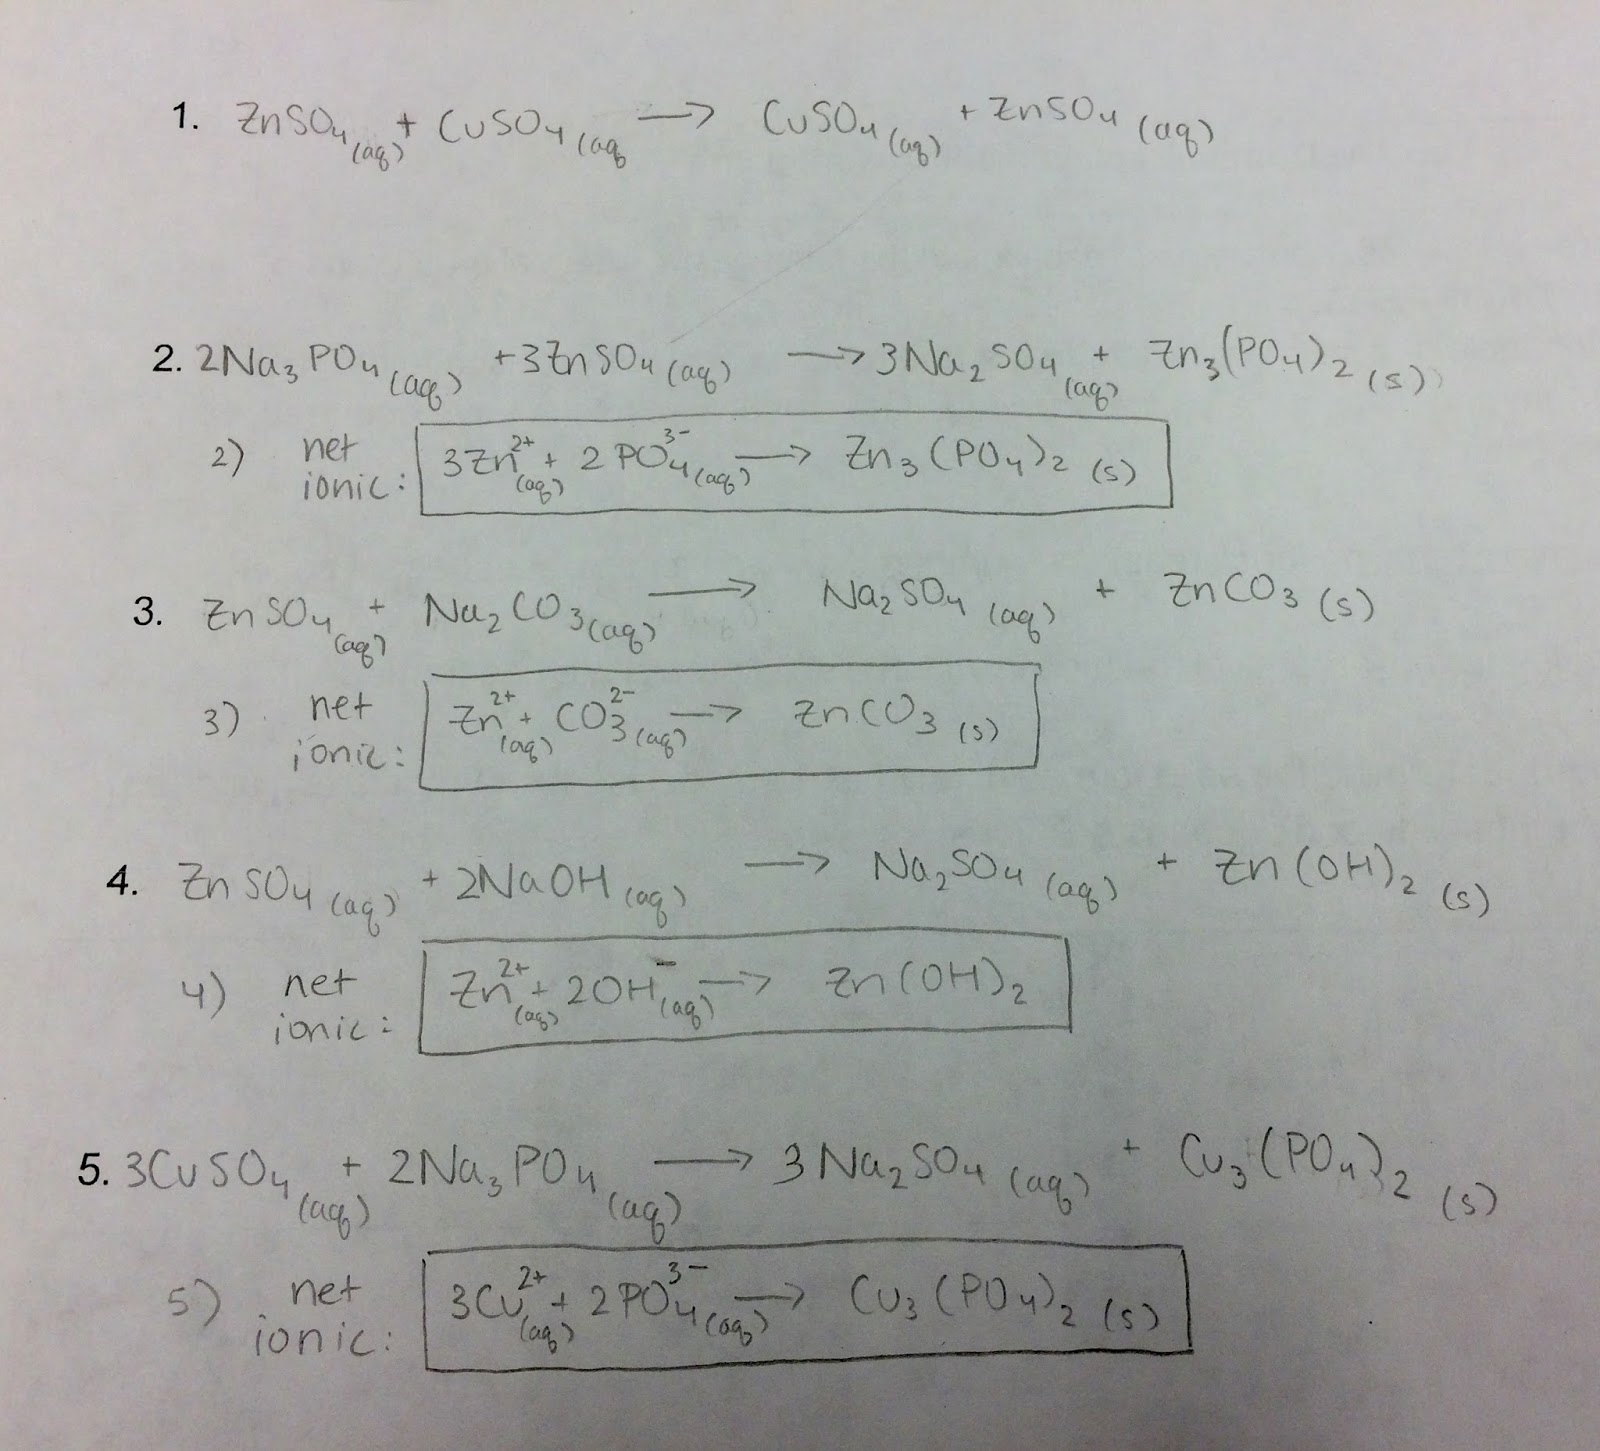 1. ZnSO₄(aq) + CuSO₄(aq → CuSO₄(aq) + ZnSO₄(aq)
2. 2Na₃PO₄(aq) + 3ZnSO₄(aq) → 3Na₂SO₄(aq) + Zn₃(PO₄)₂(s)
2) net ionic: 3Zn²⁺(aq) + 2PO₄³⁻(aq) → Zn₃(PO₄)₂(s)
3. ZnSO₄(aq) + Na₂CO₃(aq) → Na₂SO₄(aq) + ZnCO₃(s)
3) net ionic: Zn²⁺(aq) + CO₃²⁻(aq) → ZnCO₃(s)
4. ZnSO₄(aq) + 2NaOH(aq) → Na₂SO₄(aq) + Zn(OH)₂(s)
4) net ionic: Zn²⁺(aq) + 2OH⁻(aq) → Zn(OH)₂
5. 3CuSO₄(aq) + 2Na₃PO₄(aq) → 3Na₂SO₄(aq) + Cu₃(PO₄)₂(s)
5) net ionic: 3Cu²⁺(aq) + 2PO₄³⁻(aq) → Cu₃(PO₄)₂(s)